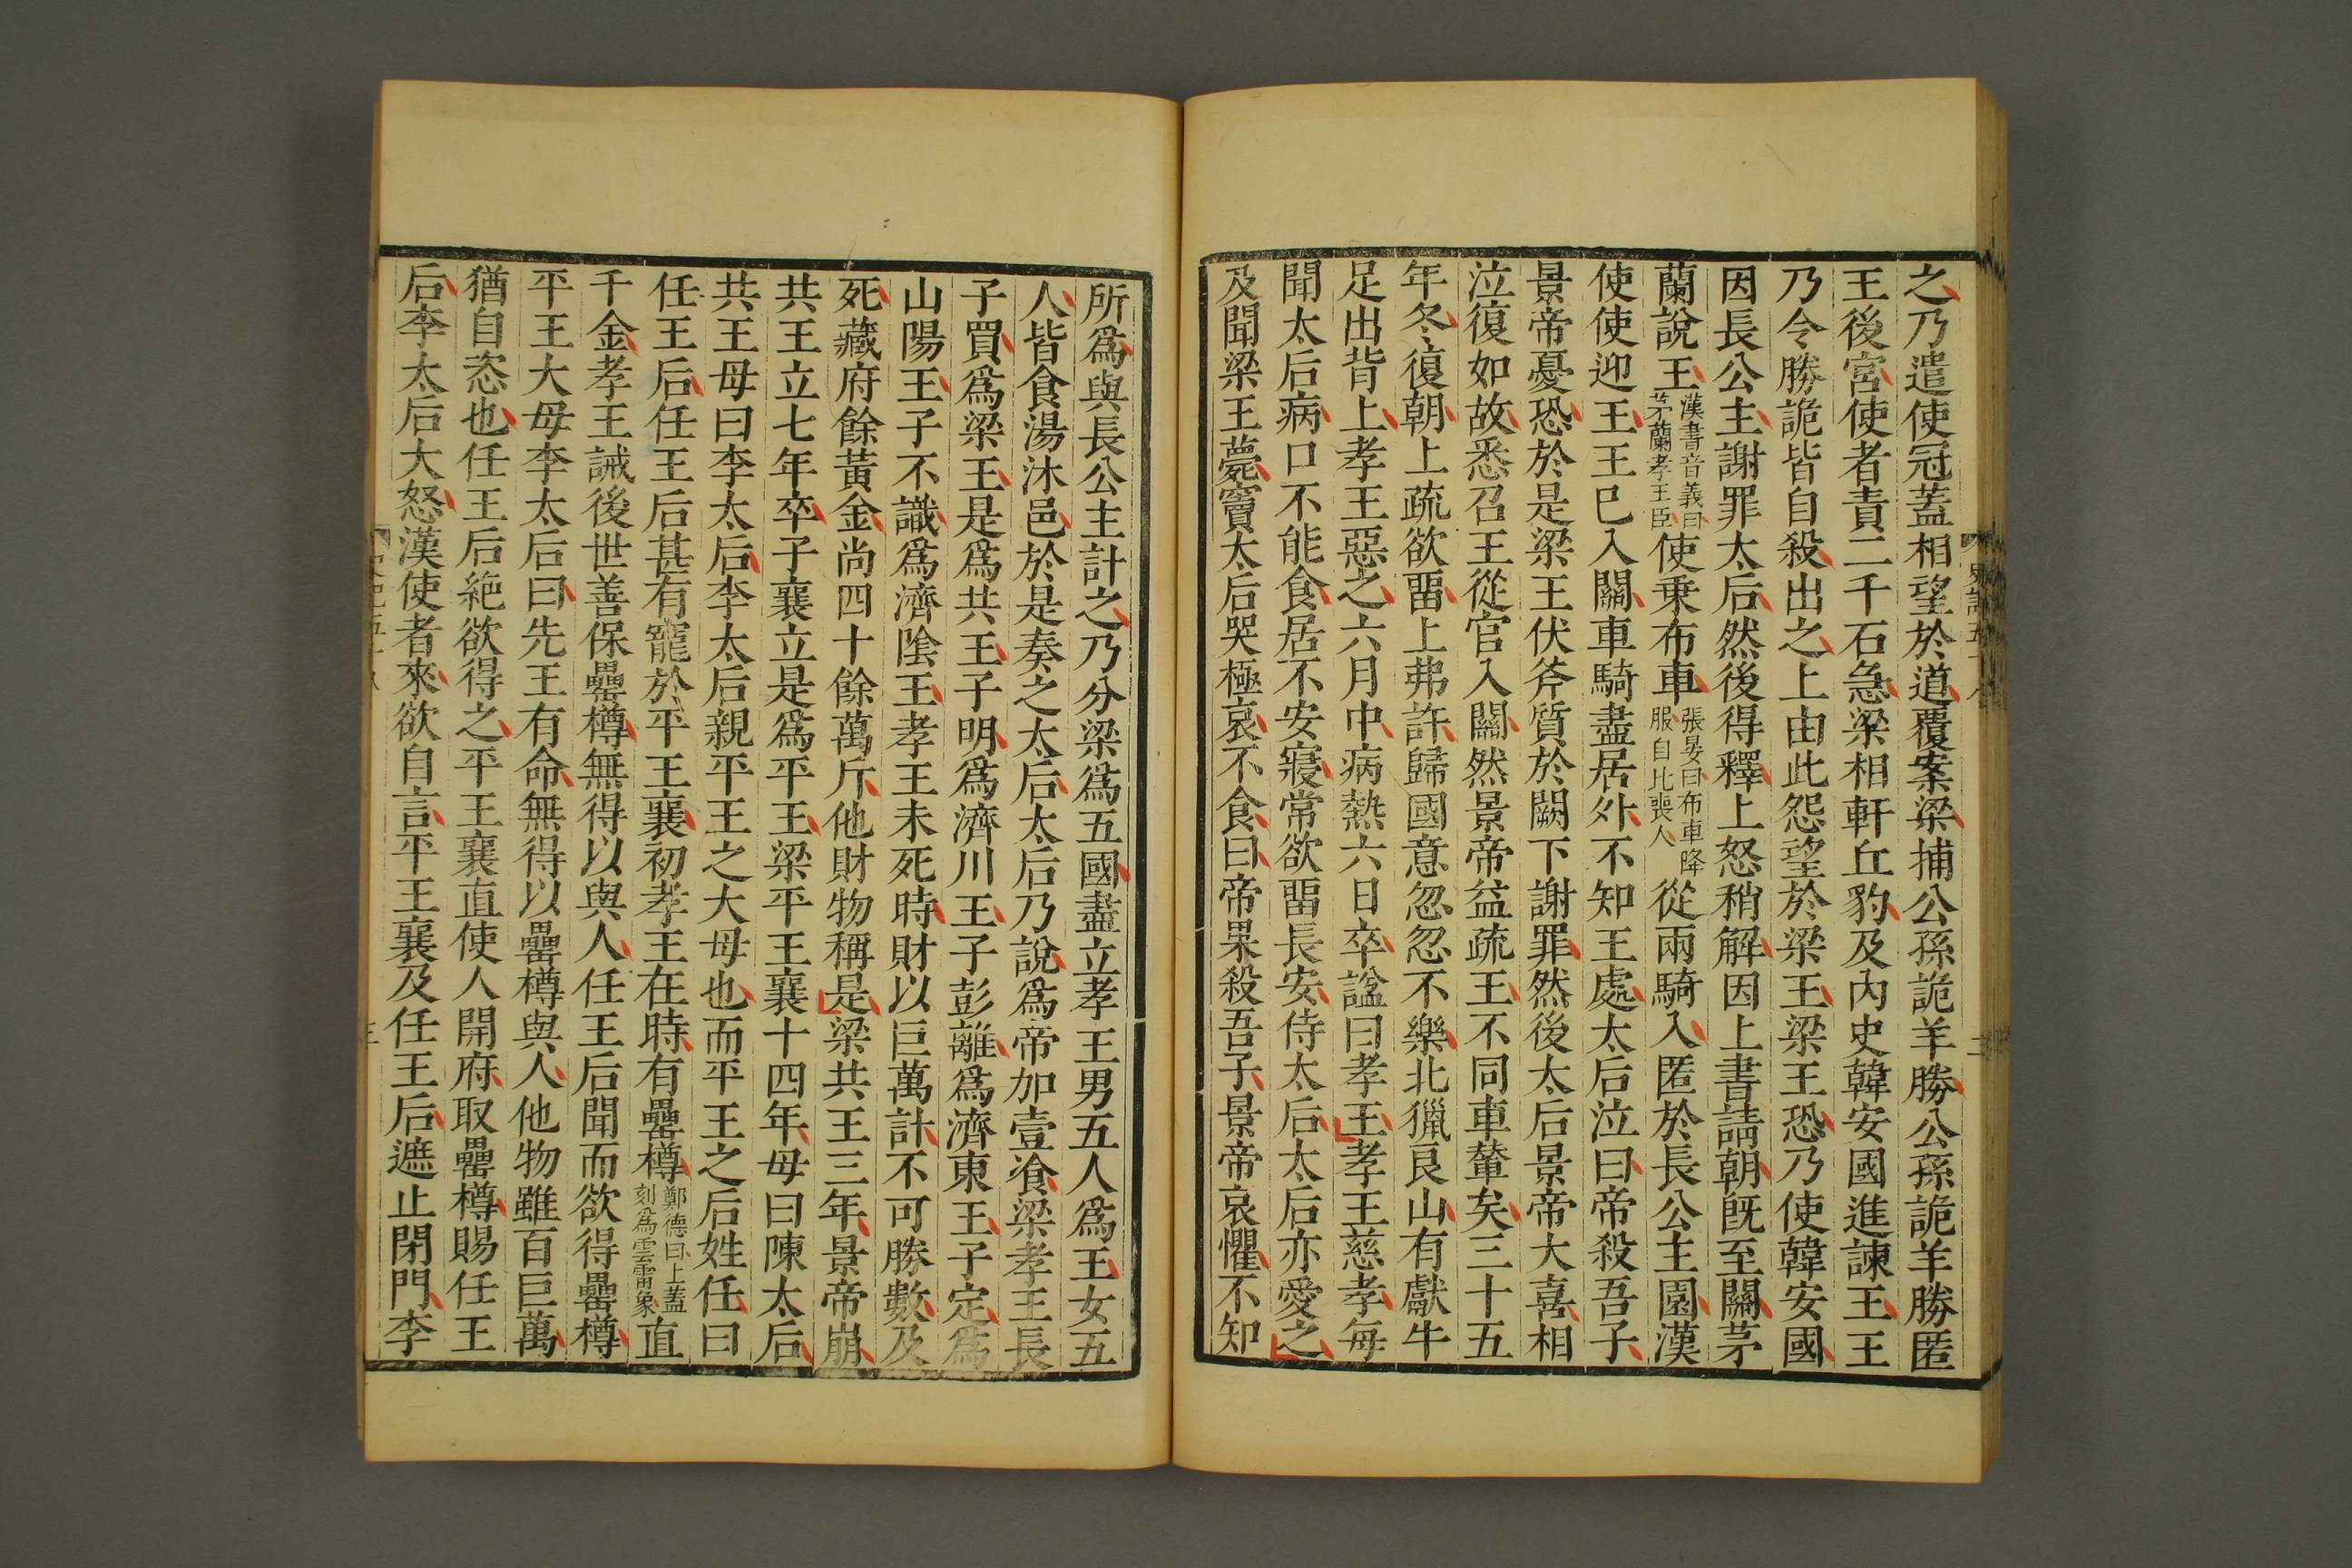 之乃遣使冠蓋相望於道覆案梁捕公孫詭羊勝公孫詭羊勝匿
王後宮使者責二千石急梁相軒丘豹及內史韓安國進諫王王
乃令勝詭皆自殺出之上由此怨望於梁王梁王恐乃使韓安國
因長公主謝罪太后然後得釋上怒稍解因上書請朝旣至關茅
蘭說王漢書音義曰茅蘭孝王臣使乗布車張晏曰布車降服自比喪人從兩騎入匿於長公主園漢
使使迎王王已入關車騎盡居外不知王處太后泣曰帝殺吾子
景帝憂恐於是梁王伏斧質於闕下謝罪然後太后景帝大喜相
泣復如故悉召王從官入關然景帝益疏王不同車輦矣三十五
年冬復朝上疏欲畱上弗許歸國意忽忽不樂北獵良山有獻牛
足出背上孝王惡之六月中病熱六日卒諡曰孝王孝王慈孝每
聞太后病口不能食居不安寢常欲畱長安侍太后太后亦愛之
及聞梁王薨竇太后哭極哀不食曰帝果殺吾子景帝哀懼不知
所爲與長公主計之乃分梁爲五國盡立孝王男五人爲王女五
人皆食湯沐邑於是奏之太后太后乃說爲帝加壹飡梁孝王長
子買爲梁王是爲共王子明爲濟川王子彭離爲濟東王子定爲
山陽王子不識爲濟陰王孝王未死時財以巨萬計不可勝數及
死藏府餘黃金尚四十餘萬斤他財物稱是梁共王三年景帝崩
共王立七年卒子襄立是爲平王梁平王襄十四年母曰陳太后
共王母曰李太后李太后親平王之大母也而平王之后姓任曰
任王后任王后甚有寵於平王襄初孝王在時有罍樽鄭德曰上蓋刻爲雲雷象直
千金孝王誡後世善保罍樽無得以與人任王后聞而欲得罍樽
平王大母李太后曰先王有命無得以罍樽與人他物雖百巨萬
猶自恣也任王后絶欲得之平王襄直使人開府取罍樽賜任王
后李太后大怒漢使者來欲自言平王襄及任王后遮止閉門李